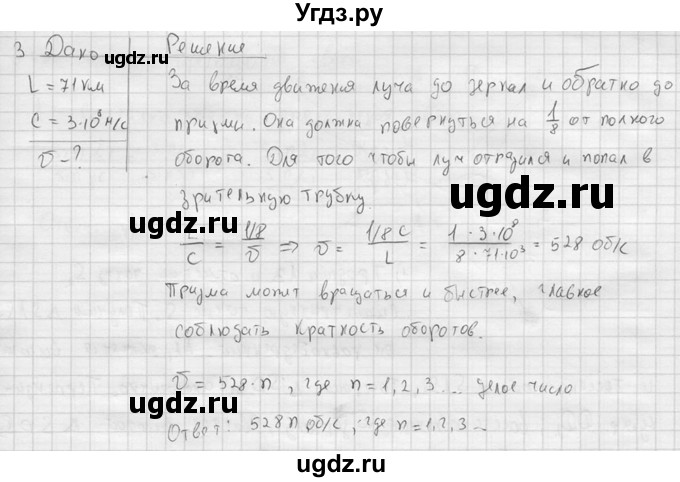 Угдз.ру
3 Дано Решение
L = 71 км За время движения луча до зеркал и обратно до
C = 3·10⁸ м/с призмы. Она должна повернуться на 1/8 от полного
ʋ - ? оборота. Для того чтобы луч отразился и попал в
зрительную трубку.
/C = 1/8/ʋ ⇒ ʋ = 1/8 C/L = 1·3·10⁸/8·71·10³ = 528 об/с
Призма может вращаться и быстрее, главное
соблюдать кратность оборотов.
ʋ = 528·n, где n = 1, 2, 3 ... целое число
Ответ: 528 n об/с, где n = 1, 2, 3 ...
ugdz.ru
ugdz.ru
ugdz.ru
ugdz.ru
ugdz.ru
ugdz.ru
ugdz.ru
ugdz.ru
ugdz.ru